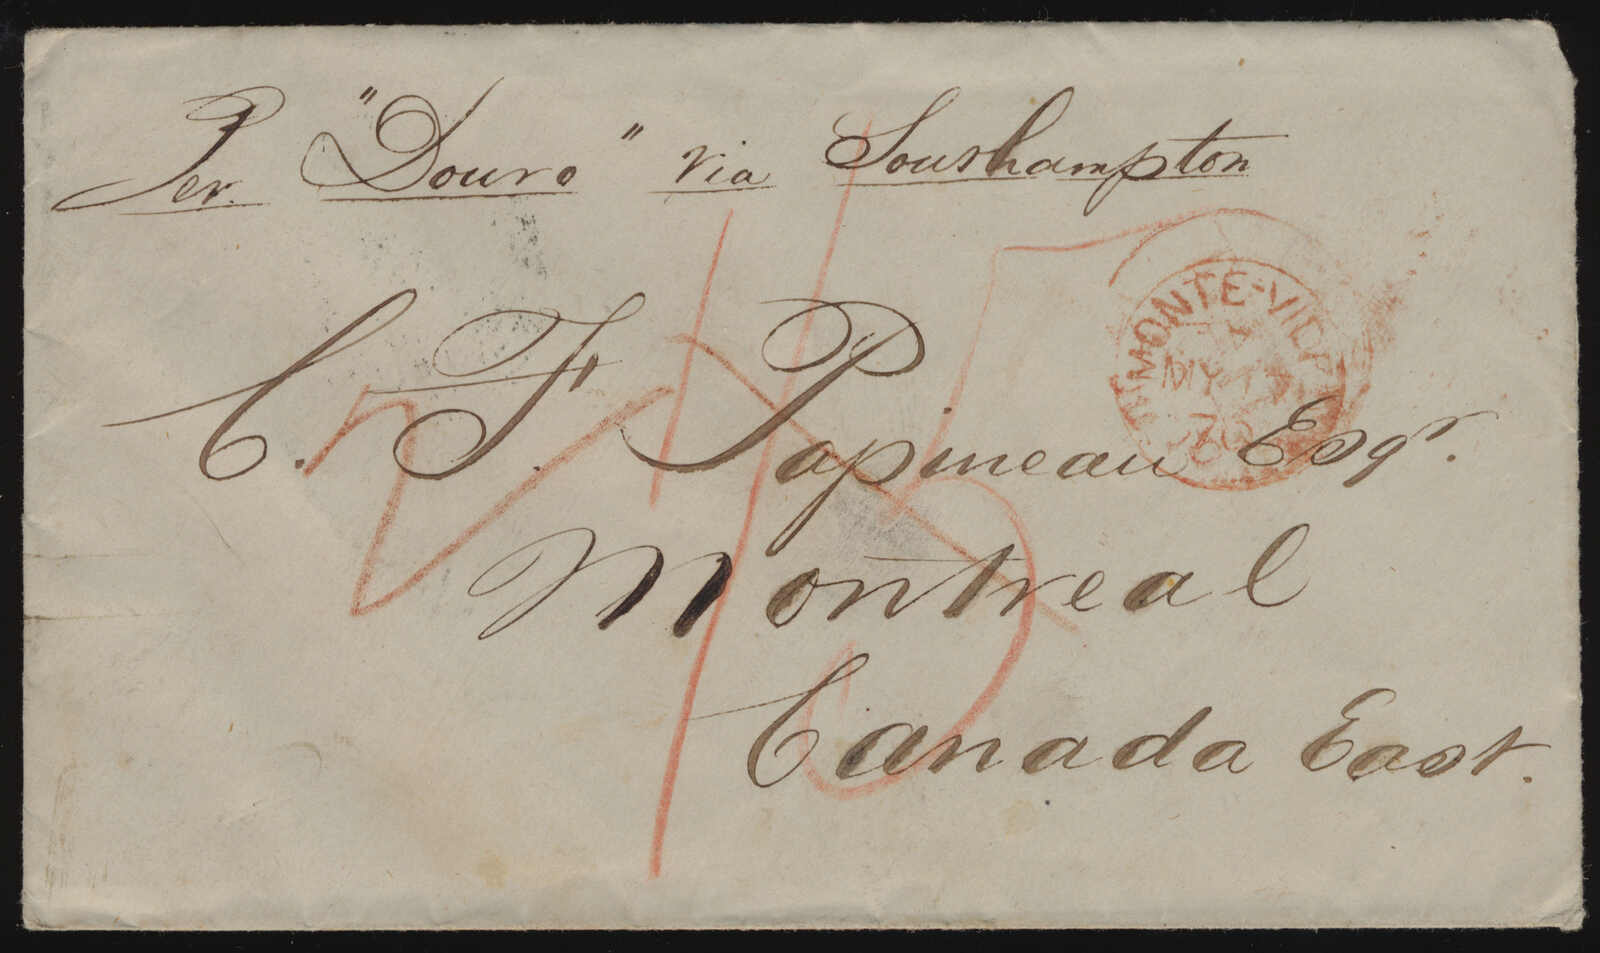 Per. "Douro" via Southampton
MONTE-VIDE
MY
C. F. Papineau Esqr.
Montreal
Canada East.